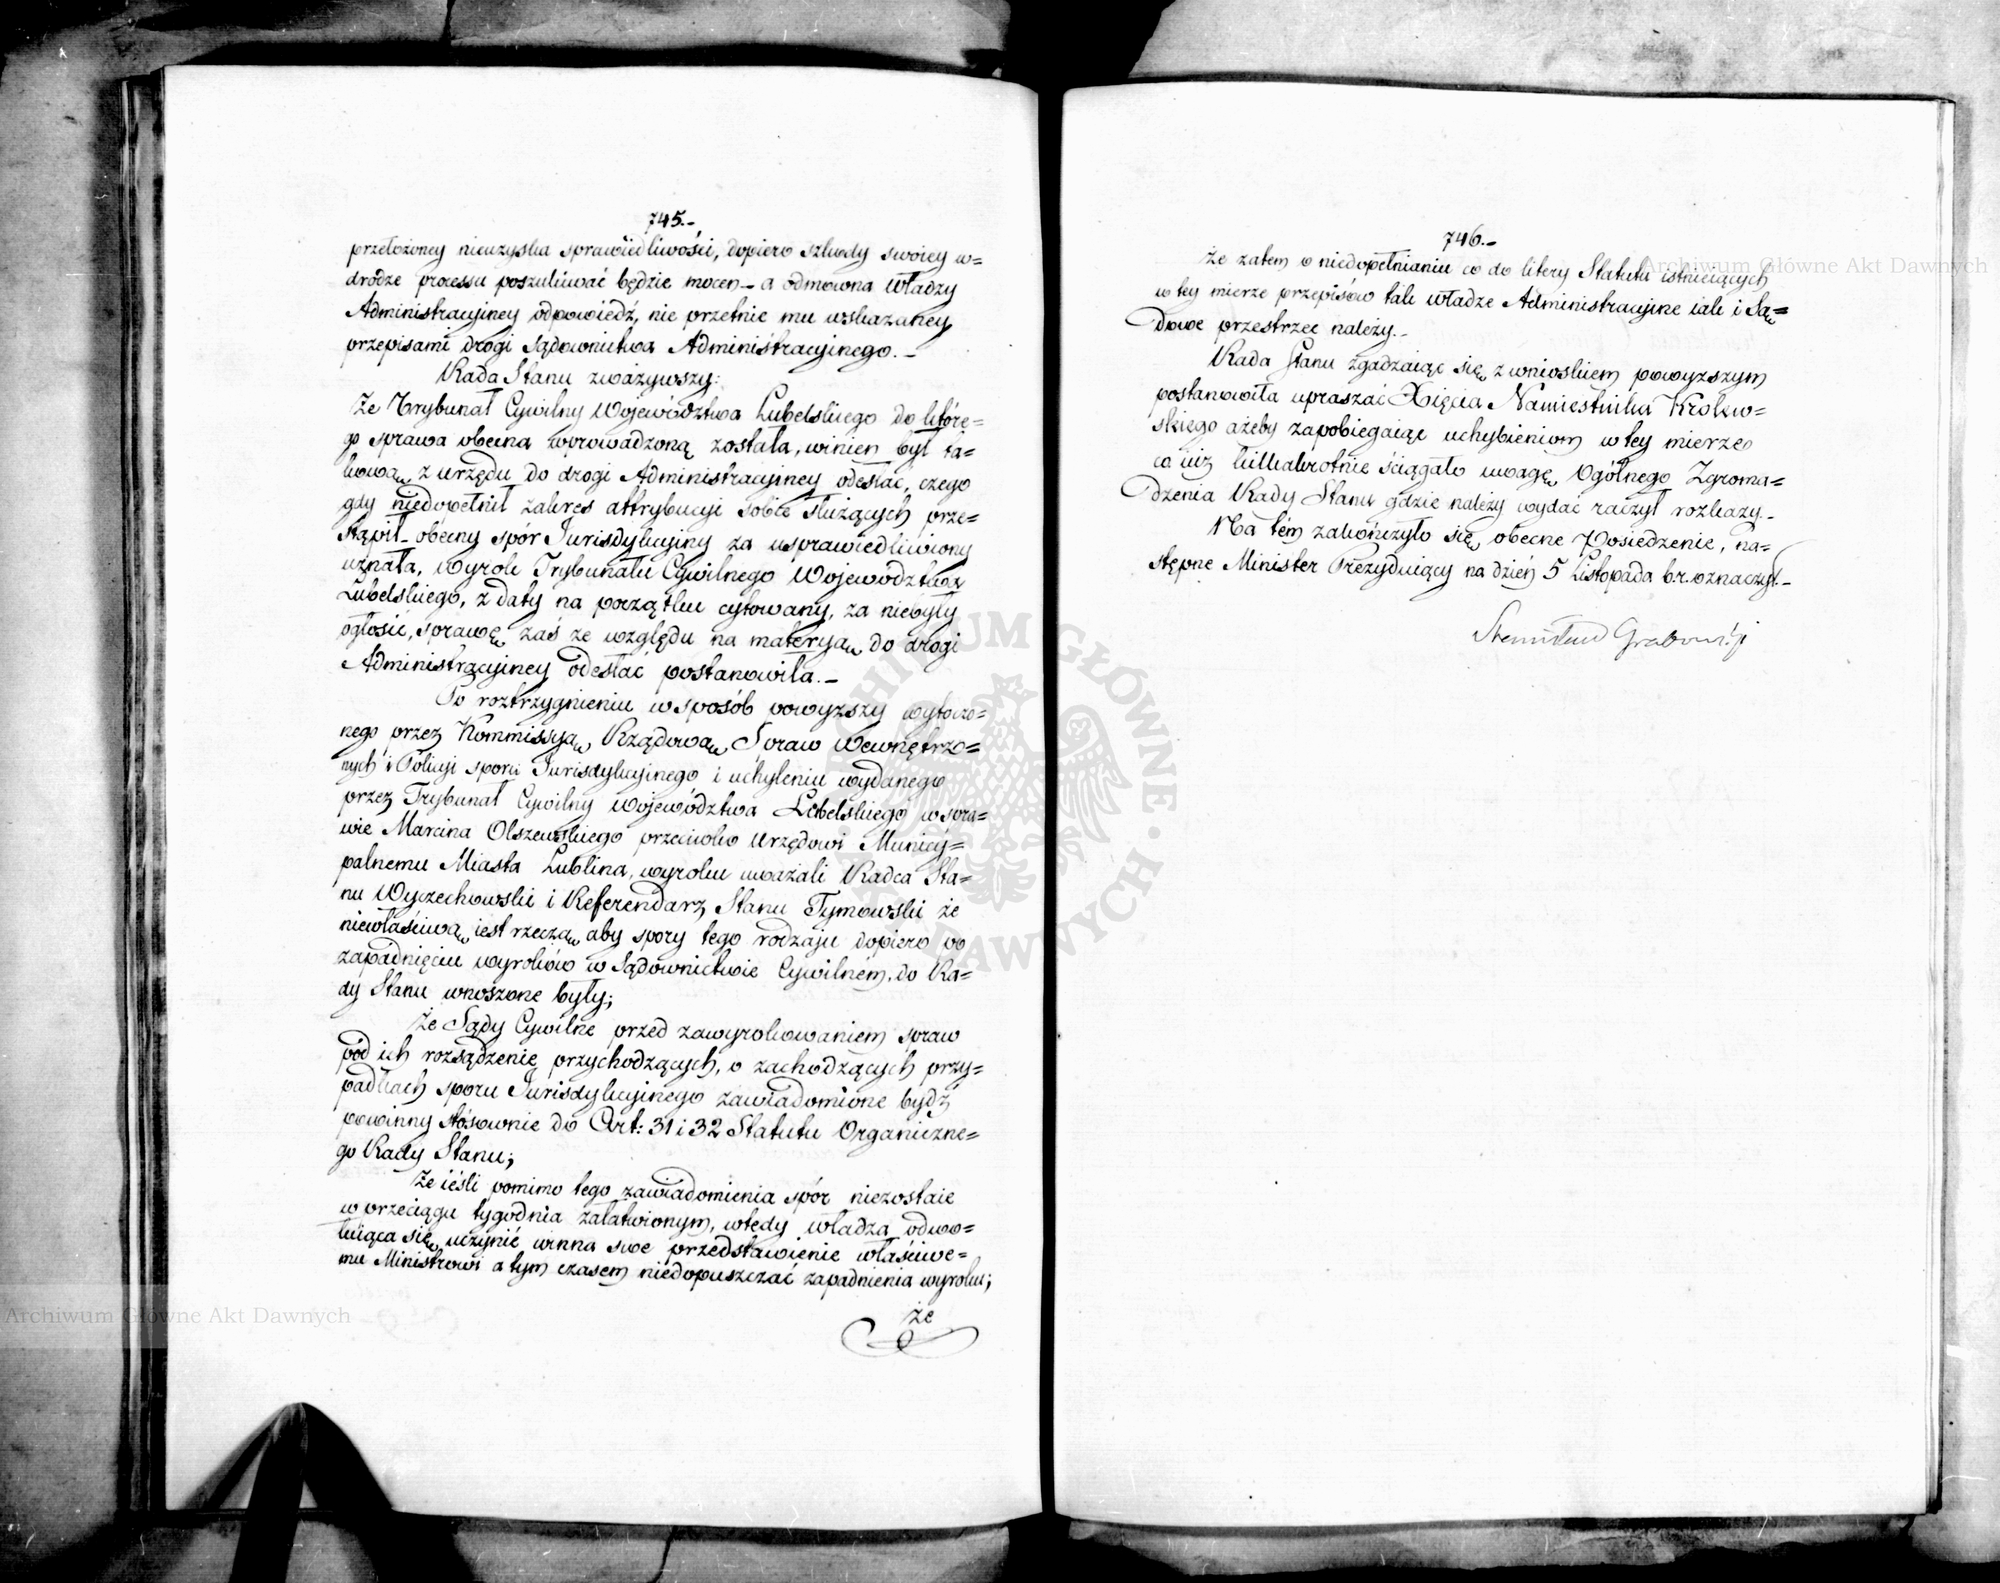 745.-
przełożoney nieuzyska sprawiedliwości, dopiero szkody swoiey w=
drodze processu poszukiwać będzie mocen – a odmowna Władzy
Administracyiney odpowiedź, nie przetnie mu wskazaney
przepisami drogi Sądownictwa Administracyinego. –
Rada Stanu zważywszy:
Że Trybunał Cywilny Województwa Lubelskiego do które=
go sprawa obecna wprowadzoną została, winien był ta=
kową z urzędu do drogi Administracyiney odesłać, czego
gdy niedopełnił zakres attrybucyi sobie służących prze=
stąpił – obecny spór Jurisdykcyiny za usprawiedliwiony
uznała, wyrok Trybunału Cywilnego Województwa
Lubelskiego, z daty na początku cytowany, za niebyły
ogłosić, sprawę zaś ze względu na materyą do drogi
Administracyiney odesłać postanowiła. –
Po roztrzygnieniu w sposób powyższy wytoczo=
nego przez Kommissyą Rządową Spraw Wewnętrz=
nych i Policyi sporu Jurisdykcyinego i uchyleniu wydanego
przez Trybunał Cywilny Województwa Lubelskiego w spra=
wie Marcina Olszewskiego przeciwko Urzędowi Municy=
palnemu Miasta Lublina, wyroku uważali Radca Sta=
nu Wyczechowski i Referendarz Stanu Tymowski że
niewłaściwą iest rzeczą aby spory tego rodzaju dopiero po
zapadnięciu wyroków w Sądownictwie Cywilném, do Ra=
dy Stanu wnoszone były;
Że Sądy Cywilne przed zawyrokowaniem spraw
pod ich rozsądzenie przychodzących, o zachodzących przy=
padkach sporu Jurisdykcyinego zawiadomione bydź
powinny stósownie do Art: 31 i 32 Statutu Organiczne=
go Rady Stanu;
Że ieśli pomimo tego zawiadomienia spór niezostaie
w przeciągu tygodnia załatwionym, wtedy władza odwo=
łuiąca się uczynić winna swe przedstawienie właściwe=
mu Ministrowi a tym czasem niedopuszczać zapadnienia wyroku;
że
746.-
Że zatem o niedopełnianiu co do litery Statutu istnieiących
w tey mierze przepisów tak władze Administracyine iak i Są=
dowe przestrzec należy. –
Rada Stanu zgadzaiąc się z wnioskiem powyższym
postanowiła upraszać Xięcia Namiestnika Królew=
skiego ażeby zapobiegaiąc uchybieniom w tey mierze
co iuż kilkakrotnie ściągało uwagę Ogólnego Zgroma=
dzenia Rady Stanu gdzie należy wydać raczył rozkazy. –
Na tém zakończyło się obecne Posiedzenie, na=
stępne Minister Prezyduiący na dzień 5 Listopada br. oznaczył. –
Stanisław Grabowski
Archiwum Główne Akt Dawnych
Archiwum Główne Akt Dawnych
ARCHIWUM GŁÓWNE · AKT DAWNYCH ·